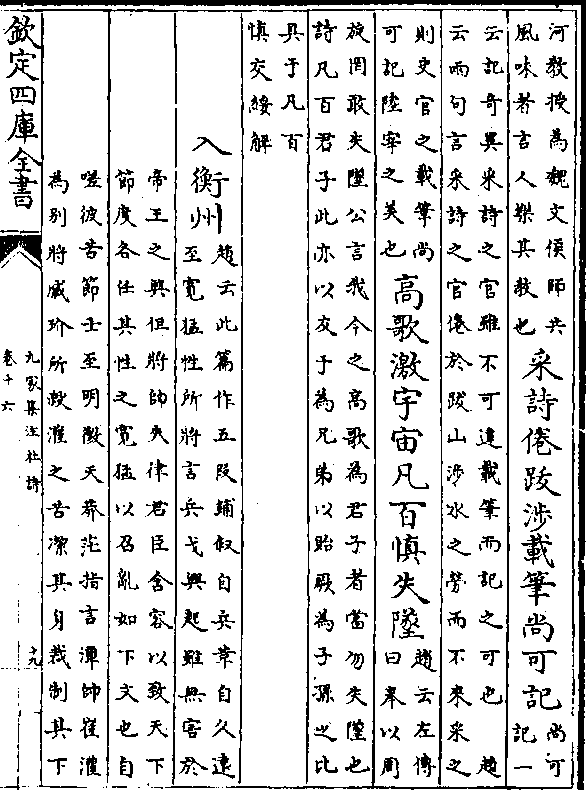 河教授為魏文侯師共
風味者言人樂其教也
采詩倦跋涉載筆尚可記
尚可
記一
云記奇異采詩之官雖不可違載筆而記之可也 趙
云兩句言采詩之官倦於跋山涉水之勞而不來采之
則史官之載筆尚
可記陸宰之美也
高歌激宇宙凡百慎失墜
趙云左傳
曰奉以周
旋罔敢失墜公言我今之高歌為君子者當勿失墜也
詩凡百君子此亦以友于為兄弟以貽厥為子孫之比
具于凡百
慎交綏解
入衡州
趙云此篇作五段鋪叙自兵革自久遠
至寛猛性所將言兵戈興起雖無害於
帝王之興但將帥失律君臣含容以致天下
節度各任其性之寛猛以召亂如下文也自
嗟彼苦節士至明徵天莽茫指言潭帥崔瓘
為别將臧玠所殺瓘之苦潔其身裁制其下
欽定四庫全書
九家集注杜詩
卷十六
十九